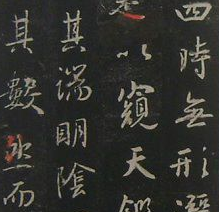 四時無形潛
是以窺天鑑
其端明陰
其數然而